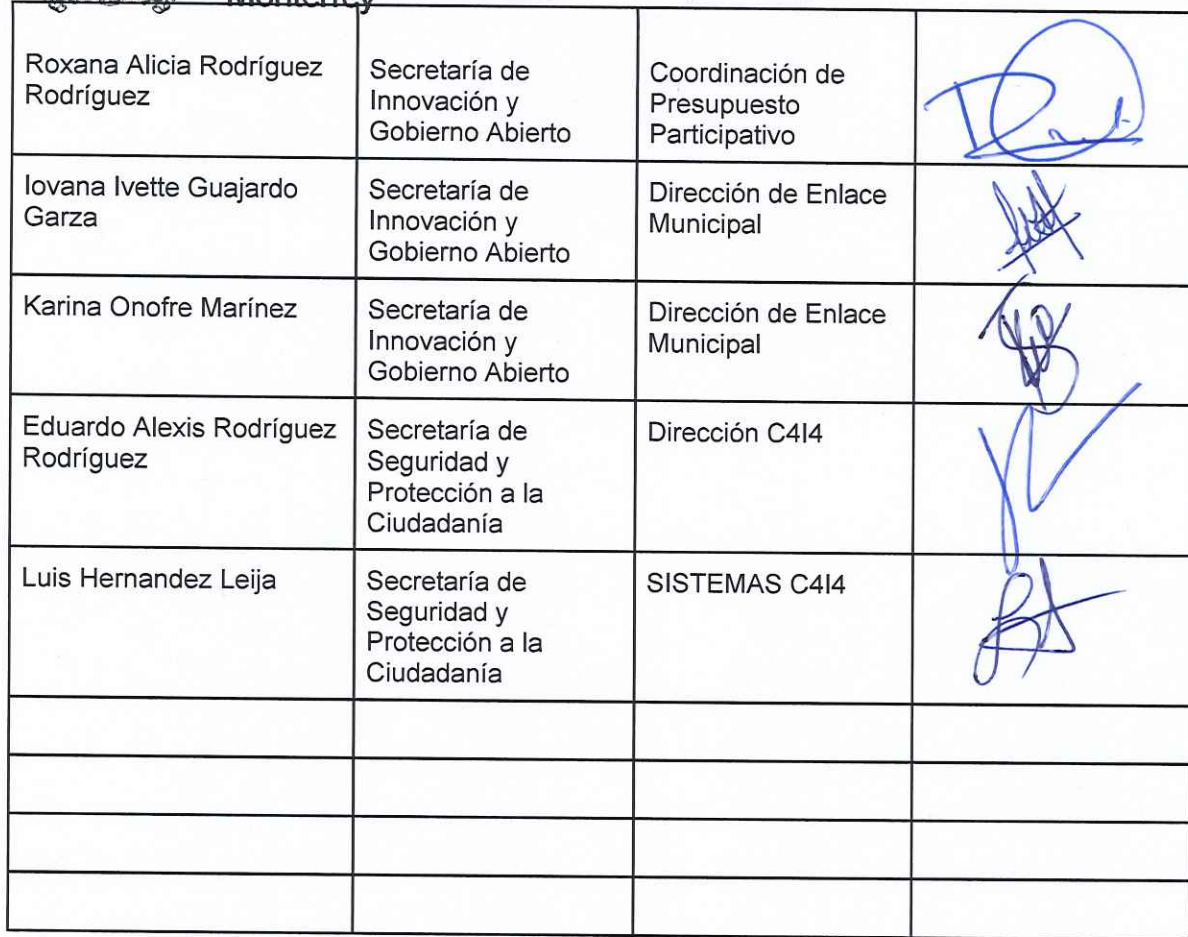 Monterrey
Roxana Alicia Rodríguez
Rodríguez
Secretaría de
Innovación y
Gobierno Abierto
Coordinación de
Presupuesto
Participativo
Iovana Ivette Guajardo
Garza
Secretaría de
Innovación y
Gobierno Abierto
Dirección de Enlace
Municipal
Karina Onofre Marínez
Secretaría de
Innovación y
Gobierno Abierto
Dirección de Enlace
Municipal
Eduardo Alexis Rodríguez
Rodríguez
Secretaría de
Seguridad y
Protección a la
Ciudadanía
Dirección C4I4
Luis Hernandez Leija
Secretaría de
Seguridad y
Protección a la
Ciudadanía
SISTEMAS C4I4